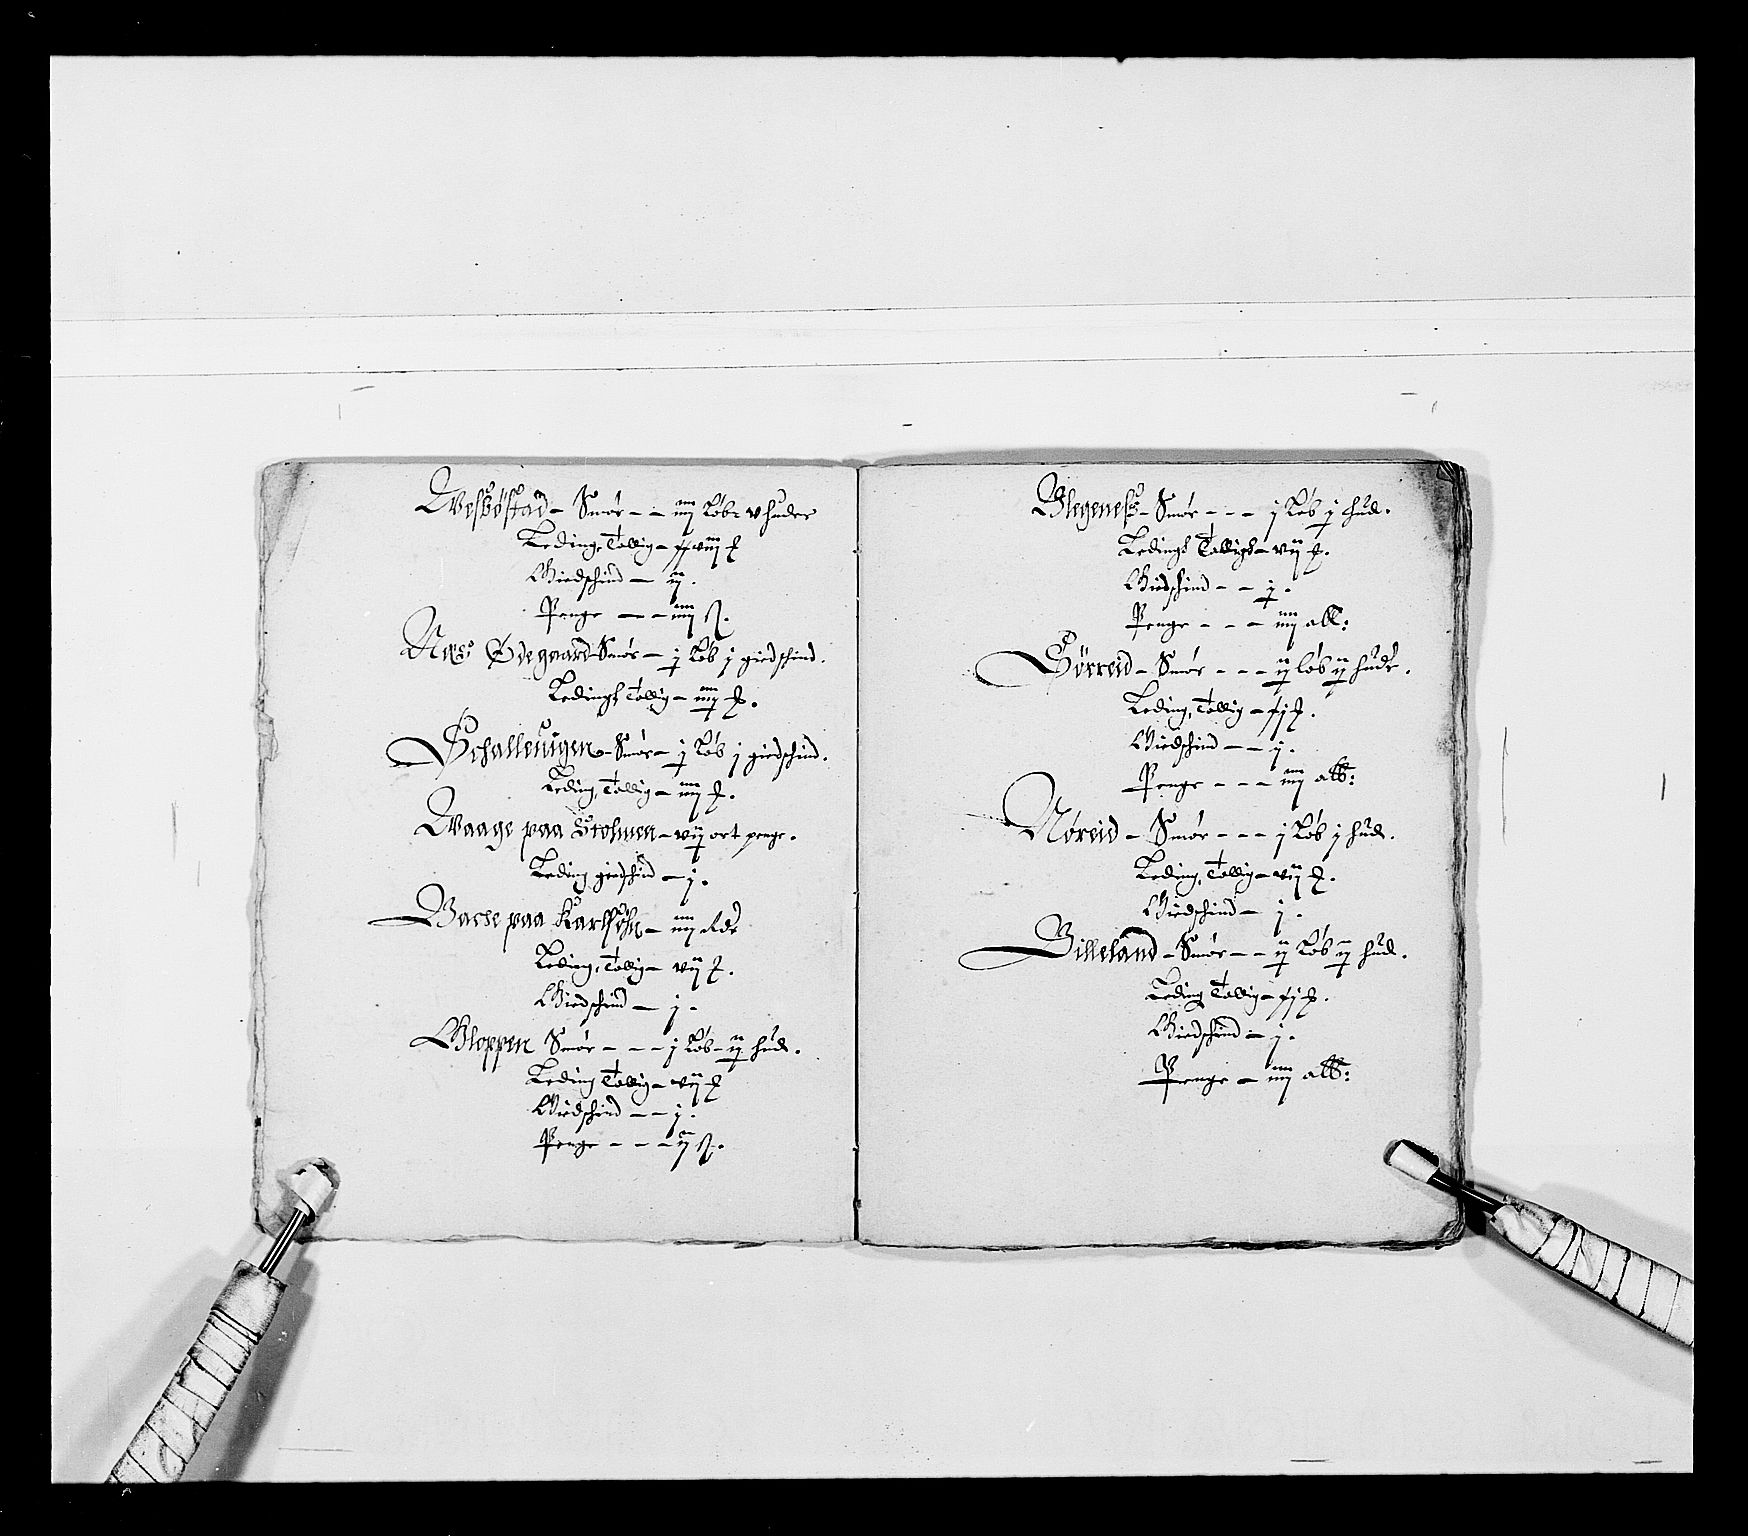 Vesbøstad - Smør - - iiij Løb - v huder
Leding, Tallig - xviij
Giedschind - ij.
Penge - - - iiij
Nes Ødegaard Smør - j Løb j giedschind.
Ledings Tallig - iiij
Schalleuigen - Smør - j Løb j giedschind.
Leding, Tallig - iiij
Waage paa Stolmen - vij ort penge.
Leding giedschind - j.
Backe paa - iiij
Leding, Tallig - vij
Giedschind - j.
Gloppen Smør - - - j Løb - ij hud.
Leding Tallig - vij
Giedschind - - j.
Penge - - - ij
Glegeness - Smør - - - j Løb j hud.
Ledings Talligh - vij
Giedschind - - j.
Penge - - - iiij alb:
Sørreid - Smør - - - ij løb ij huder.
Leding, Tallig - xj
Giedschind - - j.
Penge - - - iiij alb:
Nøreid - Smør - - - j Løb j hud.
Leding, Tallig - vij
Giedschind - j.
Billeland - Smør - - ij Løb ij hud.
Leding Tallig - xj
Giedschind - j.
Penge - iiij alb: